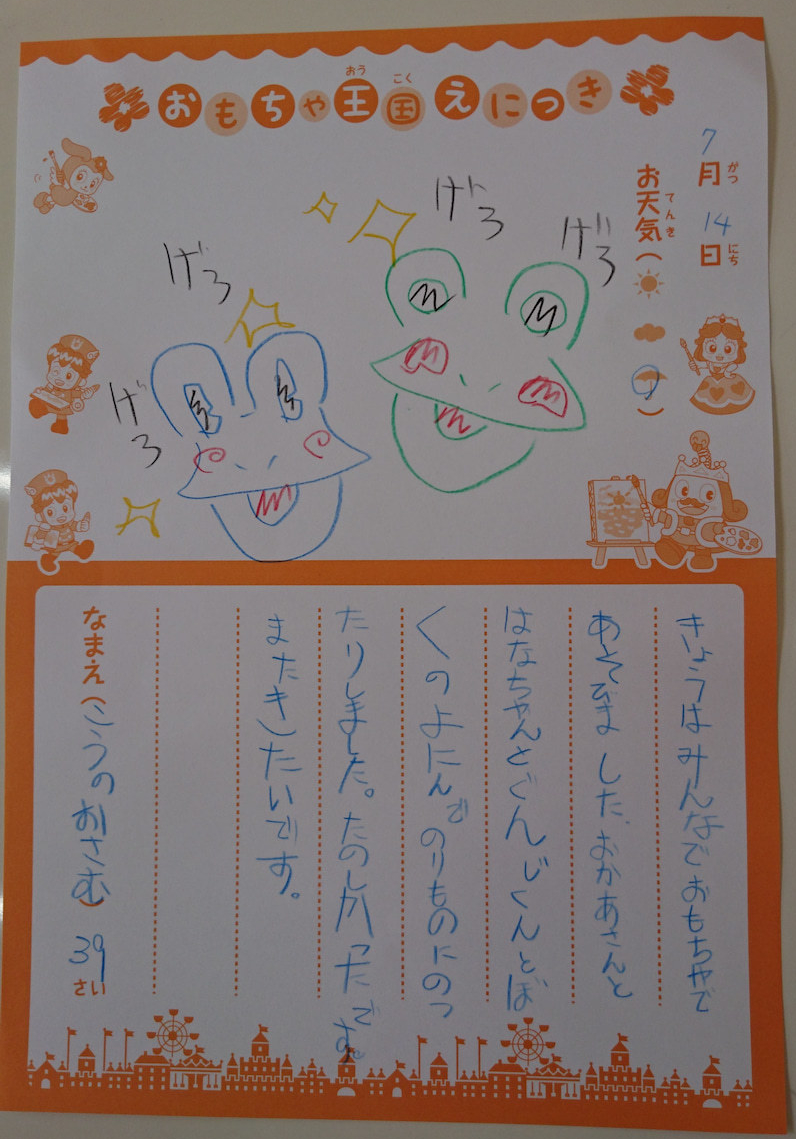 おもちゃ王国えにっき
おうこく
7月14日
がつにち
お天気（ ）
てんき
げろ
げろ
げろ
げろ
きょうはみんなでおもちゃで
あそびました、おかあさんと
はなちゃんとぐんじくんとぼ
くのよにんでのりものにのっ
たりしました。たのしかったです。
またきたいです。
なまえ（こうのおさむ）39さい